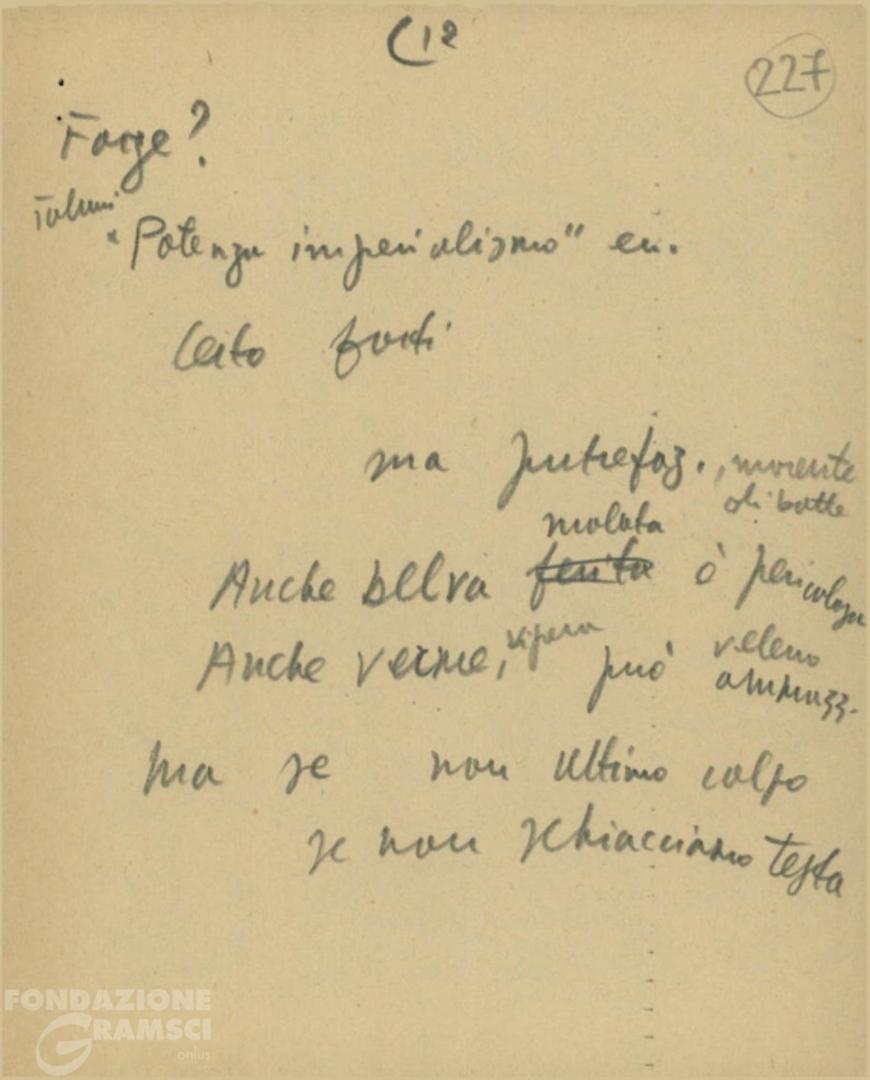 (12
227
Forze?
Taluni
"Potenza imperialismo" ecc.
Certo forti
ma putrefaz., morente
si batte
malata
Anche belva ferita è pericolosa
Anche verme, vipera può veleno
ammazz.
ma se non ultimo colpo
se non schiacciamo testa
FONDAZIONE
GRAMSCI
onlus